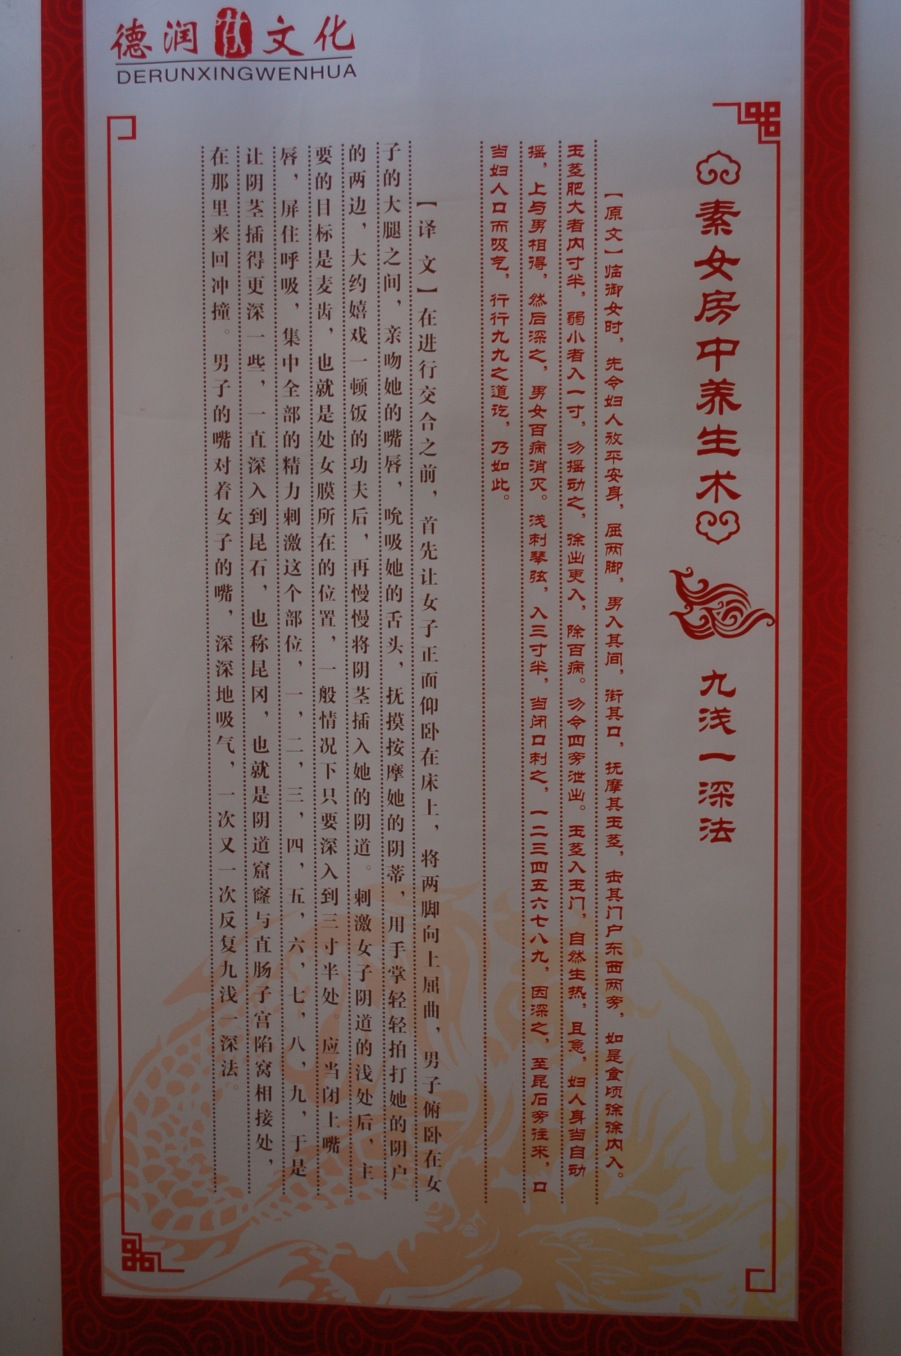 德润性文化
DERUNXINGWENHUA
素女房中养生术 九浅一深法
【原文】临御女时，先令妇人放平安身，屈两脚，男入其间，衔其口，抚摩其玉茎，击其门户东西两旁，如是食顷徐徐内入。
玉茎肥大者内寸半，弱小者入一寸，勿摇动之，徐出更入，除百病。勿令四旁泄出。玉茎入玉门，自然生热，且急，妇人身当自动
摇，上与男相得，然后深之，男女百病消灭。浅刺琴弦，入三寸半，当闭口刺之，一二三四五六七八九，因深之，至昆石旁往来，口
当妇人口而吸气，行行九九之道讫，乃如此。
【译文】在进行交合之前，首先让女子正面仰卧在床上，将两脚向上屈曲，男子俯卧在女
子的大腿之间，亲吻她的嘴唇，吮吸她的舌头，抚摸按摩她的阴蒂，用手掌轻轻拍打她的阴户
的两边，大约嬉戏一顿饭的功夫后，再慢慢将阴茎插入她的阴道。刺激女子阴道的浅处后，主
要的目标是麦齿，也就是处女膜所在的位置，一般情况下只要深入到三寸半处 应当闭上嘴
唇，屏住呼吸，集中全部的精力刺激这个部位，一，二，三，四，五，六，七，八，九，于是
让阴茎插得更深一些，一直深入到昆石，也称昆冈，也就是阴道窟窿与直肠子宫陷窝相接处，
在那里来回冲撞。男子的嘴对着女子的嘴，深深地吸气，一次又一次反复九浅一深法。